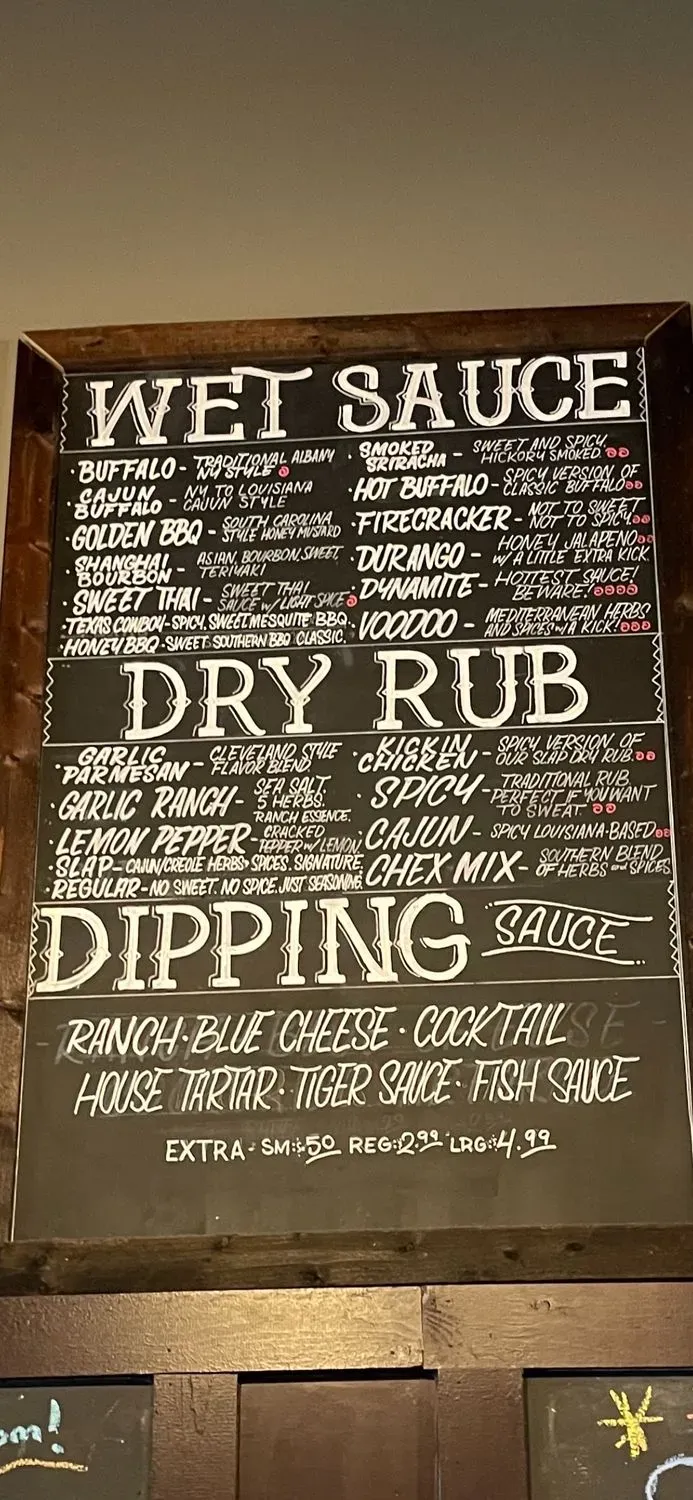 WET SAUCE
· BUFFALO - TRADITIONAL ALBANY
NY STYLE
· CAJUN
BUFFALO - NY TO LOUISIANA
CAJUN STYLE
· GOLDEN BBQ - SOUTH CAROLINA
STYLE HONEY MUSTARD
· SHANGHAI
BOURBON - ASIAN, BOURBON, SWEET
TERIYAKI
· SWEET THAI - SWEET THAI
SAUCE w/ LIGHT SPICE
· TEXAS COWBOY - SPICY, SWEET, MESQUITE BBQ.
· HONEY BBQ - SWEET SOUTHERN BBQ CLASSIC.
· SMOKED
SRIRACHA - SWEET AND SPICY,
HICKORY SMOKED.
· HOT BUFFALO - SPICY VERSION OF
CLASSIC BUFFALO
· FIRECRACKER - NOT TO SWEET
NOT TO SPICY.
· DURANGO - HONEY JALAPENO
w/ A LITTLE EXTRA KICK.
· DYNAMITE - HOTTEST SAUCE!
BEWARE!
· VOODOO - MEDITERRANEAN HERBS
AND SPICES w/ A KICK!
DRY RUB
· GARLIC
PARMESAN - CLEVELAND STYLE
FLAVOR BLEND
· GARLIC RANCH - SEA SALT.
5 HERBS.
RANCH ESSENCE.
· LEMON PEPPER - CRACKED
PEPPER w/ LEMON.
· SLAP - CAJUN/CREOLE HERBS + SPICES. SIGNATURE.
· REGULAR - NO SWEET. NO SPICE. JUST SEASONING.
· KICKIN
CHICKEN - SPICY VERSION OF
OUR SLAP DRY RUB.
· SPICY - TRADITIONAL RUB
PERFECT IF YOU WANT
TO SWEAT.
· CAJUN - SPICY LOUISIANA-BASED
· CHEX MIX - SOUTHERN BLEND
OF HERBS and SPICES
DIPPING SAUCE
RANCH · BLUE CHEESE · COCKTAIL
HOUSE TARTAR · TIGER SAUCE · FISH SAUCE
EXTRA - SM: $.50 REG: $2.99 LRG: $4.99